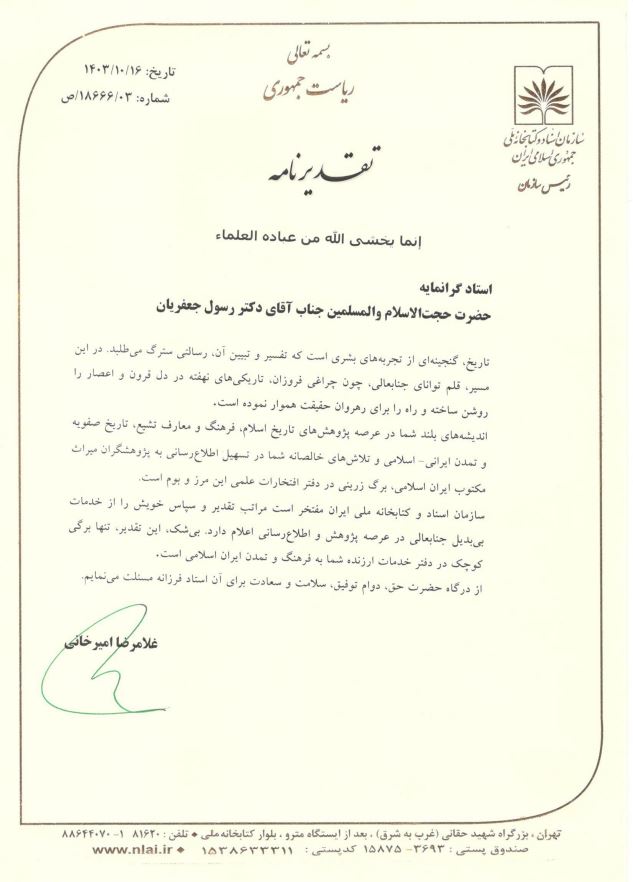 بسمه تعالی
ریاست جمهوری
تاریخ: ۱۴۰۳/۱۰/۱۶
شماره: ۱۸۶۶۶/۰۳/ص
سازمان اسناد و کتابخانه ملی
جمهوری اسلامی ایران
رئیس سازمان
تقدیرنامه
إنما یخشی الله من عباده العلماء
استاد گرانمایه
حضرت حجت‌الاسلام والمسلمین جناب آقای دکتر رسول جعفریان
تاریخ، گنجینه‌ای از تجربه‌های بشری است که تفسیر و تبیین آن، رسالتی سترگ می‌طلبد. در این
مسیر، قلم توانای جنابعالی، چون چراغی فروزان، تاریکی‌های نهفته در دل قرون و اعصار را
روشن ساخته و راه را برای رهروان حقیقت هموار نموده است.
اندیشه‌های بلند شما در عرصه پژوهش‌های تاریخ اسلام، فرهنگ و معارف تشیع، تاریخ صفویه
و تمدن ایرانی- اسلامی و تلاش‌های خالصانه شما در تسهیل اطلاع‌رسانی به پژوهشگران میراث
مکتوب ایران اسلامی، برگ زرینی در دفتر افتخارات علمی این مرز و بوم است.
سازمان اسناد و کتابخانه ملی ایران مفتخر است مراتب تقدیر و سپاس خویش را از خدمات
بی‌بدیل جنابعالی در عرصه پژوهش و اطلاع‌رسانی اعلام دارد. بی‌شک، این تقدیر، تنها برگی
کوچک در دفتر خدمات ارزنده شما به فرهنگ و تمدن ایران اسلامی است.
از درگاه حضرت حق، دوام توفیق، سلامت و سعادت برای آن استاد فرزانه مسئلت می‌نمایم.
غلامرضا امیرخانی
تهران ، بزرگراه شهید حقانی (غرب به شرق) ، بعد از ایستگاه مترو ، بلوار کتابخانه ملی ♦ تلفن : ۸۱۶۲۰ ۱- ۸۸۶۴۴۰۷۰
صندوق پستی : ۳۶۹۳- ۱۵۸۷۵ کدپستی : ۱۵۳۸۶۳۳۳۱۱ ♦ www.nlai.ir